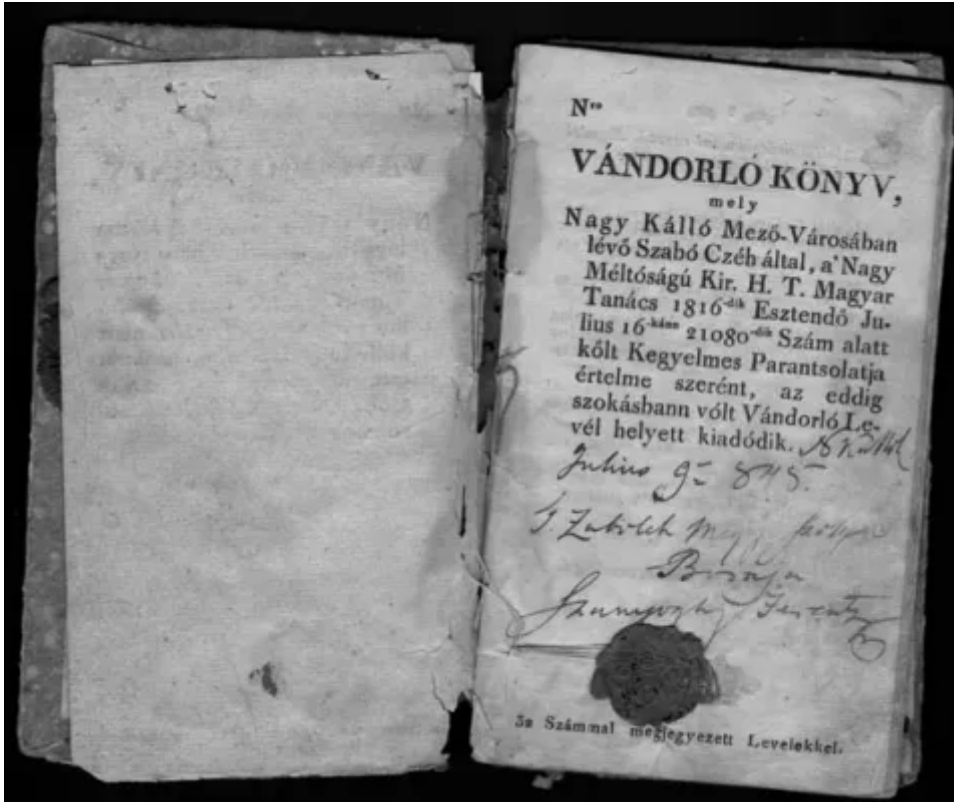 Nro
VÁNDORLÓ KÖNYV,
mely
Nagy Kálló Mező-Városában
lévő Szabó Czéh által, a' Nagy
Méltóságú Kir. H. T. Magyar
Tanács 1816-dik Esztendő Ju-
lius 16-kánn 21080-dik Szám alatt
költ Kegyelmes Parantsolatja
értelme szerént, az eddig
szokásbann vólt Vándorló Le-
vél helyett kiadódik. N Kálló
Julius 9n 845.
T. Zabolch
Birája
Szunyogh Ferentz
32 Számmal megjegyezett Levelekkel.